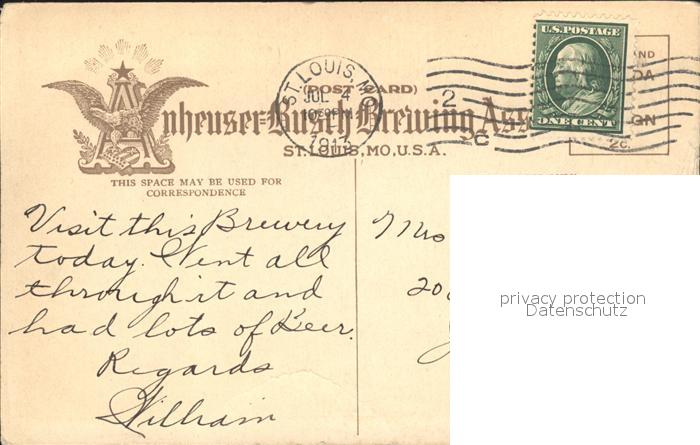 U.S. POSTAGE
ONE CENT
ST. LOUIS, M
JUL
1913
2
(POST CARD)
Anheuser-Busch Brewing Ass
ST. LOUIS, MO, U.S.A.
AND
DA
GN
2c.
THIS SPACE MAY BE USED FOR
CORRESPONDENCE
Visit this Brewery
today. Went all
through it and
had lots of Beer.
Regards
William
Mrs
20
privacy protection
Datenschutz